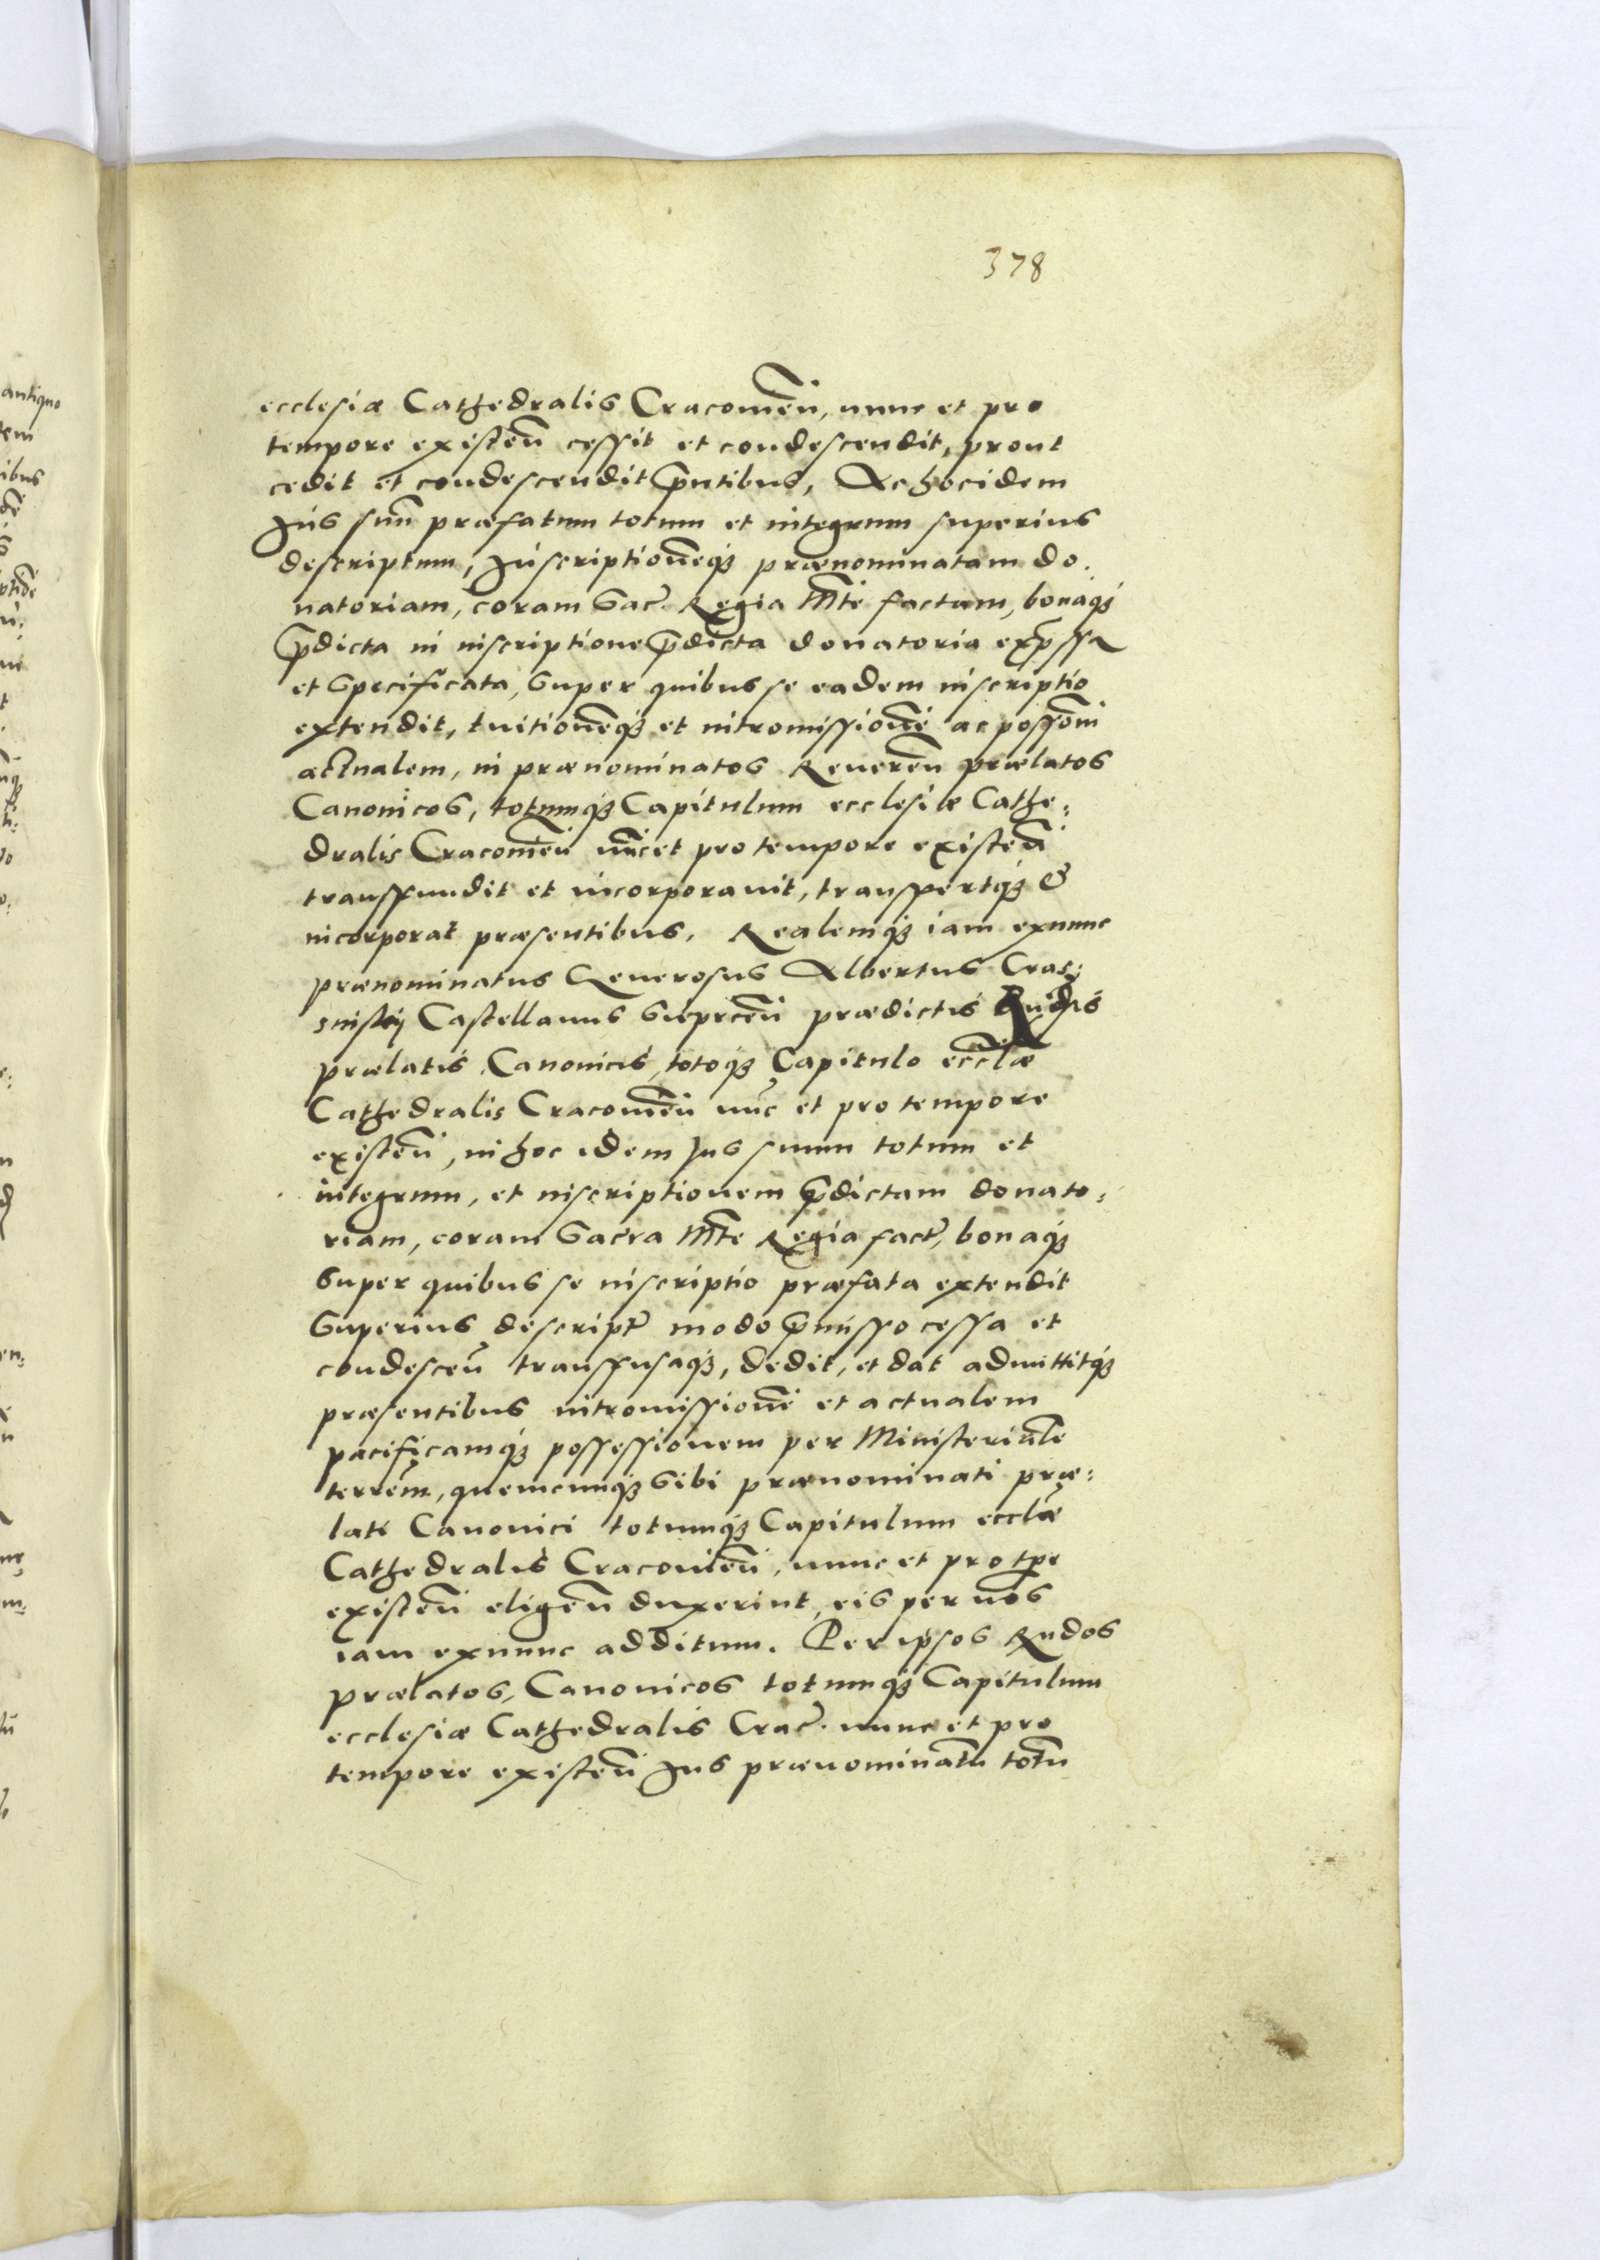 378
ecclesiæ Cathedralis Cracovieñ, nunc et pro
tempore existeñ cessit et condescendit, prout
cedit et condescendit p̃ntibus, Ac hoc idem
Jus suũ præfatum totum et integrum superius
descriptum, Inscriptionẽq3 prænominatam do.
natoriam, coram Sac̃. Regia Mt̃e factam, bonaq3
p̃dicta in inscriptione p̃dicta donatoria exp̃ssa
et Specificata, Super quibus se eadem inscriptio
extendit, tuitionẽq3 et intromissionẽ ac possõni
actualem, in prænominatos Revereñ prælatos
Canonicos, totumq3 Capitulum ecclesiæ Cathe:
dralis Cracovieñ nũc et pro tempore existeñ
transfundit et incorporavit, transfertq3 &
incorporat præsentibus. Realemq3 iam exnunc
prænominatus Generosus Albertus Cras:
snistij Castellanus Sieprceñ prædictis Rñdis
prælatis Canonicis, totoq3 Capitulo eccl̃æ
Cathedralis Cracovieñ nũc et pro tempore
existeñ, in hoc idem Jus suum totum et
integrum, et inscriptionem p̃dictam donato:
riam, coram Sacra Mt̃e Regia fact̃, bonaq3
Super quibus se inscriptio præfata extendit
Superius descript̃ modo p̃misso cessa et
condesceñ transfusaq3, dedit, et dat admittitq3
præsentibus intromissionẽ et actualem
pacificamq3 possessionem per Ministerialẽ
terrẽm, quemcunq3 Sibi prænominati præ:
lati Canonici totumq3 Capitulum eccl̃æ
Cathedralis Cracovieñ, nunc et pro tp̃re
existeñ eligeñ duxerint, eis per nos
iam exnunc additum. Per ipsos Rndos
prælatos, Canonicos totumq3 Capitulum
ecclesiæ Cathedralis Crac̃. nunc et pro
tempore existeñ Jus prænominatũ totũ